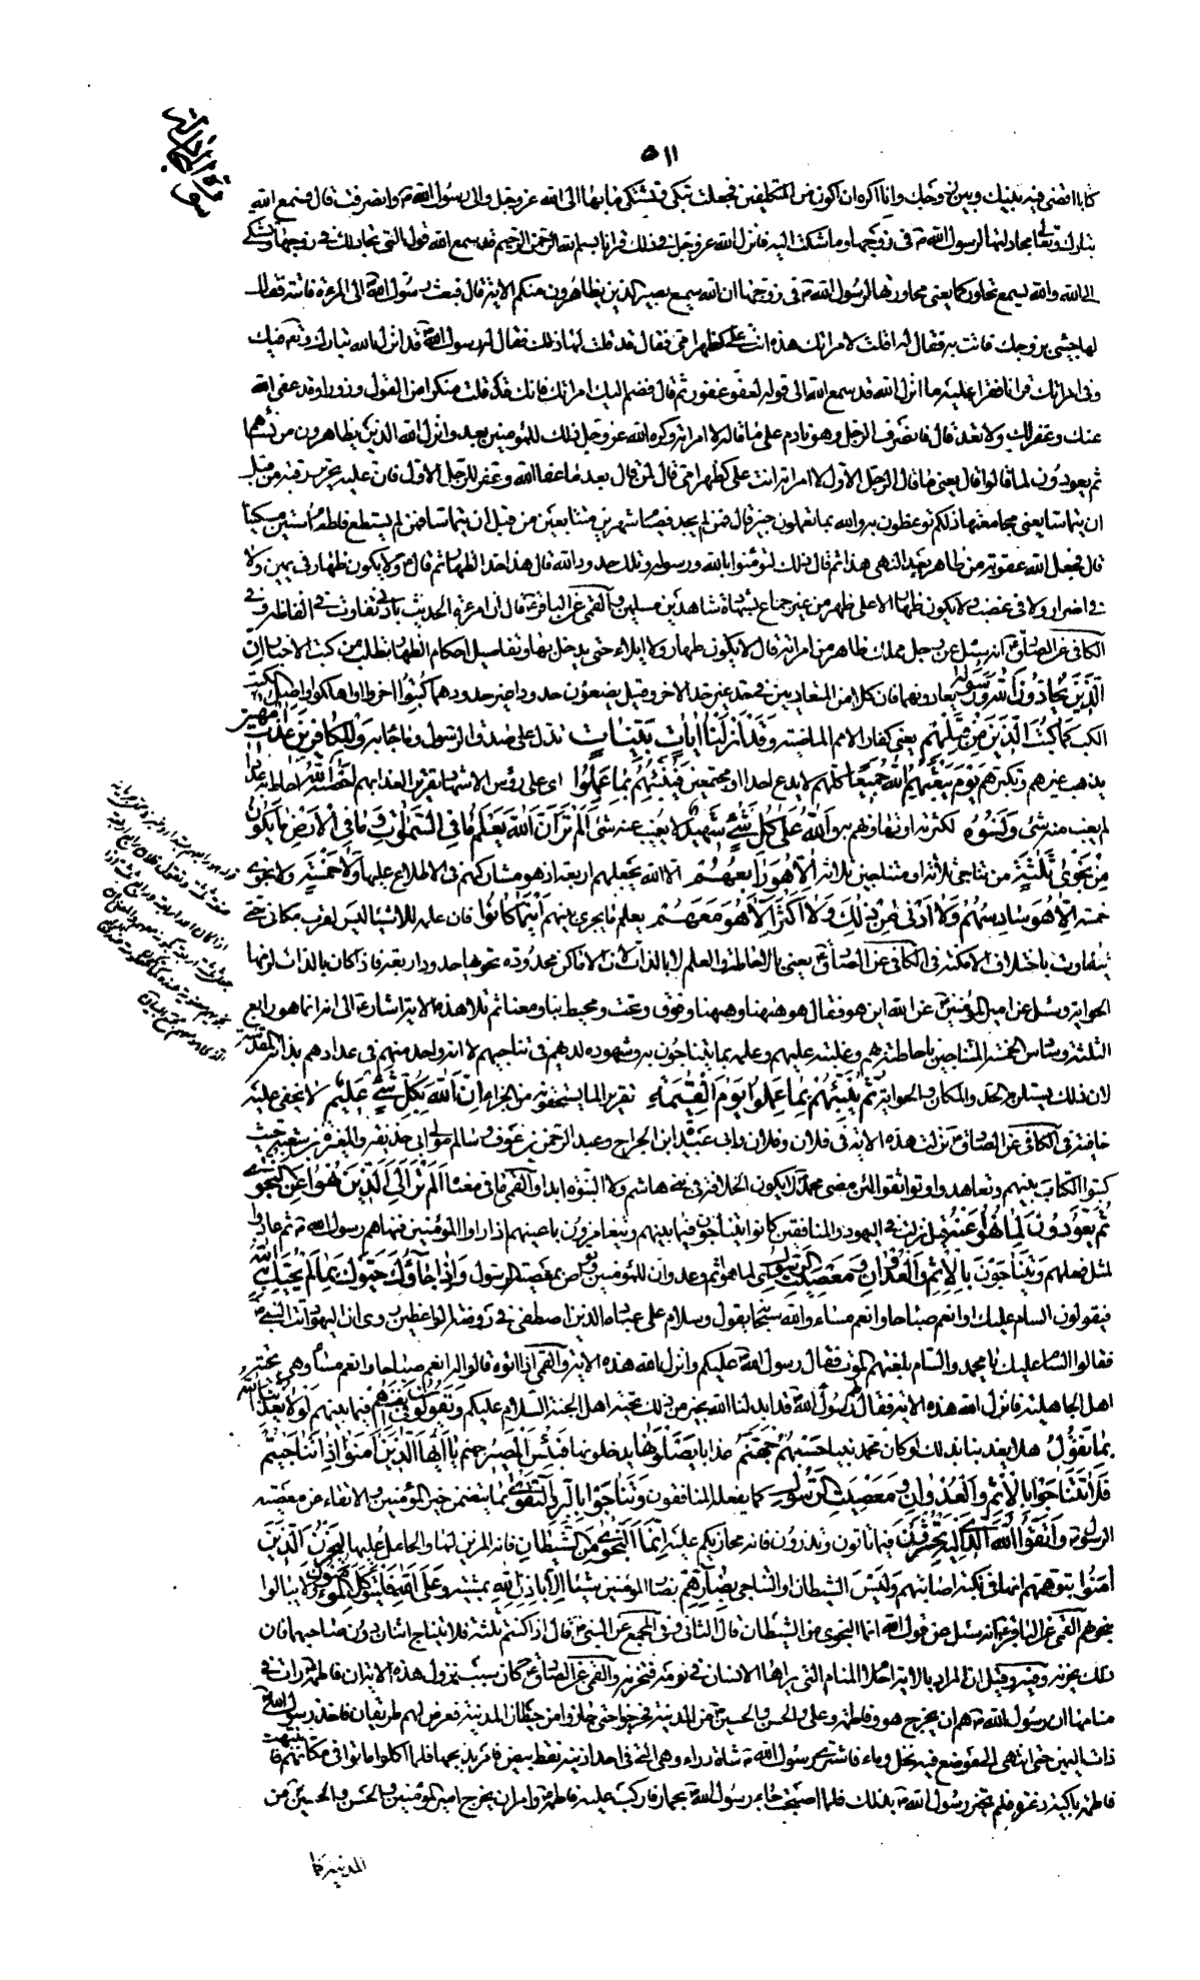 ٥١١
سورة المجادلة
كتابا اقضى فيه بينك وبين زوجك وانا اكره ان اكون من المتكلفين فجعلت تبكى وتشتكى ما بها الى الله عز وجل والى رسول الله ص وانصرفت قال فسمع الله
تبارك وتعالى مجادلتها لرسول الله ص فى زوجها وما شكت اليه فانزل الله عز وجل فى ذلك قرانا بسم الله الرحمن الرحيم قد سمع الله قول التى تجادلك فى زوجها وتشتكى
الى الله والله يسمع تحاوركما يعنى محاورتها لرسول الله ص فى زوجها ان الله سميع بصير الذين يظاهرون منكم الاية قال فبعث رسول الله ص الى المرءة فاتته فقال
لها جيئى بزوجك فاتت به فقال له اقلت لامراتك هذه انت على كظهر امى فقال قد قلت لها ذلك فقال له رسول الله ص قد انزل الله تبارك وتعالى فيك
وفى امراتك قرانا فقرا عليه ما انزل الله قد سمع الله الى قوله لعفو غفور ثم قال فضم اليك امراتك فانك قد قلت منكرا من القول وزورا وقد عفى الله
عنك وغفر لك ولا تعد قال فانصرف الرجل وهو نادم على ما قاله لامراته وكره الله عز وجل ذلك للمؤمنين بعد وانزل الله الذين يظاهرون من نسائهم
ثم يعودون لما قالوا قال يعنى ما قال الرجل الاول لامراته انت على كظهر امى قال فمن قال بعد ما عفا الله وغفر للرجل الاول فان عليه تحرير رقبة من قبل
ان يتماسا يعنى مجامعتها ذلكم توعظون به والله بما تعملون خبير قال فمن لم يجد فصيام شهرين متتابعين من قبل ان يتماسا فمن لم يستطع فاطعام ستين مسكينا
قال فجعل الله عقوبة من ظاهر بعد النهى هذا ثم قال ذلك لتؤمنوا بالله ورسوله وتلك حدود الله قال هذا حد الظهار ثم قال ع ولا يكون ظهار فى يمين ولا
فى اضرار ولا فى غضب ولا يكون ظهار الا على طهر من غير جماع بشهادة شاهدين مسلمين والقمى عن الباقر ع قال ان امراة الحديث بادنى تفاوت فى الفاظه وفى
الكافى عن الصادق ع انه سئل عن رجل مملك ظاهر من امراته قال لا يكون ظهار ولا ايلاء حتى يدخل بها وتفاصيل احكام الظهار تطلب من كتب الاخبار ان
الذين يحادون الله ورسوله يعادونهما فان كلا من المتعاديين فى حد غير حد الاخر وقيل يضعون حدودا غير حدودهما كبتوا اخزوا او اهلكوا واصل الكبت
الكب كما كبت الذين من قبلهم يعنى كفار الامم الماضية وقد انزلنا ايات بينات تدل على صدق الرسول وما جاء به وللكافرين عذاب مهين
يذهب عزهم وتكبرهم يوم يبعثهم الله جميعا كلهم لا يدع احدا او مجتمعين فينبئهم بما عملوا اى على رؤس الاشهاد تقريرا لعذابهم احصيه الله احاط به عددا
لم يغب منه شئ ونسوه لكثرته او تهاونهم به والله على كل شئ شهيد لا يغيب عنه شئ الم تر ان الله يعلم ما فى السموات وما فى الارض ما يكون
من نجوى ثلثة من تناجى ثلاثة او متناجين ثلاثة الا هو رابعهم الا الله يجعلهم اربعة اذ هو مشاركهم فى الاطلاع عليها ولا خمسة ولا نجوى
خمسة الا هو سادسهم ولا ادنى من ذلك ولا اكثر الا هو معهم يعلم ما يجرى بينهم اينما كانوا فان علمه للاشياء ليس لقرب مكانى حتى
يتفاوت باختلاف الامكنة فى الكافى عن الصادق ع يعنى بالاحاطة والعلم لا بالذات لان الاماكن محدودة تحويها حدود اربعة فاذا كان بالذات لزمها
الحواية وسئل عن امير المؤمنين ع عن الله اين هو فقال هو هيهنا وهيهنا وفوق وتحت ومحيط بنا ومعنا ثم تلا هذه الاية اشارة الى انه انما هو رابع
الثلثة وسادس الخمسة المتناجين باحاطته بهم وغلبته عليهم وعلمه بما يتناجون به وشهوده لديهم فى تناجيهم لا انه واحد منهم فى عدادهم بذاته المقدسة
لان ذلك يستلزم الحد والمكان والحواية ثم ينبئهم بما عملوا يوم القيمة تقريرا لما يستحقونه من الجزاء ان الله بكل شئ عليم لا يخفى عليه
خافية فى الكافى عن الصادق ع نزلت هذه الاية فى فلان وفلان وابى عبيدة ابن الجراح وعبد الرحمن بن عوف وسالم مولى ابى حذيفة والمغيرة بن شعبة حيث
كتبوا الكتاب بينهم وتعاهدوا وتوافقوا لئن مضى محمد ص لا يكون الخلافة فى بنى هاشم ولا النبوة ابدا والقمى ما فى معناه الم تر الى الذين نهوا عن النجوى
ثم يعودون لما نهوا عنه قيل نزلت فى اليهود والمنافقين كانوا يتناجون فيما بينهم ويتغامزون باعينهم اذا راوا المؤمنين فنهاهم رسول الله ص ثم عادوا
لمثل فعلهم ويتناجون بالاثم والعدوان ومعصيت الرسول اى بما هو اثم وعدوان للمؤمنين وتواص بمعصية الرسول واذا جاؤك حيوك بما لم يحيك به الله
فيقولون السام عليك او انعم صباحا وانعم مساء والله سبحانه يقول وسلام على عباده الذين اصطفى فى روضة الواعظين روى ان اليهود اتت النبى ص
فقالوا السام عليك يا محمد والسام بلغتهم الموت فقال رسول الله ص عليكم وانزل الله هذه الاية والقمى اذا اتوه قالوا له انعم صباحا وانعم مساء وهى تحية
اهل الجاهلية فانزل الله هذه الاية فقال لهم رسول الله ص قد ابدلنا الله بخير من ذلك تحية اهل الجنة السلام عليكم ويقولون فى انفسهم فيما بينهم لولا يعذبنا الله
بما نقول هلا يعذبنا بذلك لو كان محمد نبيا حسبهم جهنم عذابا يصلونها يدخلونها فبئس المصير جهنم يا ايها الذين امنوا اذا تناجيتم
فلا تتناجوا بالاثم والعدوان ومعصيت الرسول كما يفعله المنافقون وتناجوا بالبر والتقوى بما يتضمن خير المؤمنين والاتقاء عن معصية
الرسول ص واتقوا الله الذى اليه تحشرون فيما تاتون وتذرون فانه مجازيكم عليه انما النجوى من الشيطان فانه المزين لها والحامل عليها ليحزن الذين
امنوا بتوهمهم انها فى نكبة اصابتهم وليس الشيطان او التناجى بضارهم بضار المؤمنين شيئا الا باذن الله بمشيته وعلى الله فليتوكل المؤمنون ولا يبالوا
بنجويهم القمى عن الباقر ع انه سئل عن قول الله انما النجوى من الشيطان قال الثانى وفى المجمع عن النبى ص قال اذا كنتم ثلثة فلا يتناج اثنان دون صاحبهما فان
ذلك يحزنه وفيه وقيل ان المراد بالاية احلام المنام التى يراها الانسان فى نومه فتحزنه والقمى عن الصادق ع كان سبب نزول هذه الاية ان فاطمة ع رات فى
منامها ان رسول الله ص هم ان يخرج هو وفاطمة وعلى والحسن والحسين ع من المدينة فخرجوا حتى جازوا من حيطان المدينة فعرض لهم طريقان فاخذ رسول الله ص
ذات اليمين حتى انتهى الى موضع فيه نخل وماء فاشترى رسول الله ص شاة ذراء وهى التى فى احد اذنيها نقط بيض فامر بذبحها فلما اكلوا ماتوا فى مكانهم فانتبهت
فاطمة باكية ذعرة فلم تخبر رسول الله ص بذلك فلما اصبحت جاء رسول الله ص بحمار فاركب عليه فاطمة ع وامر ان يخرج امير المؤمنين والحسن والحسين ع من
المدينة كما